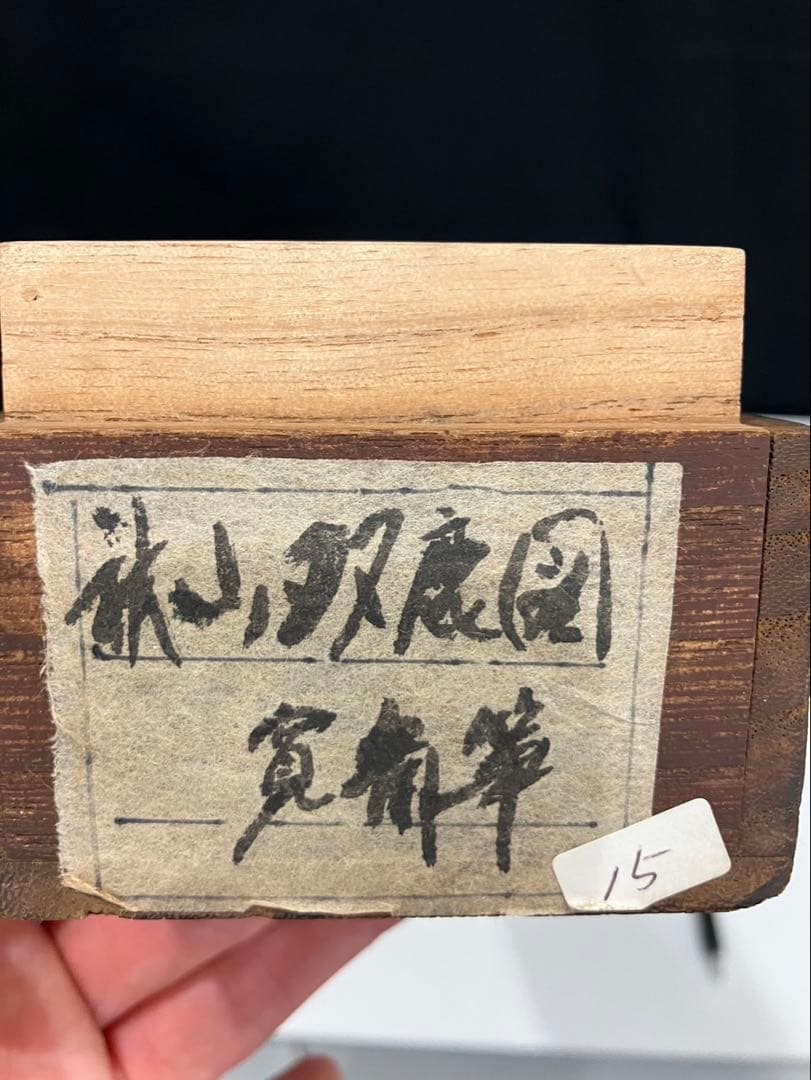 秋山双鹿図
寛斎筆
15